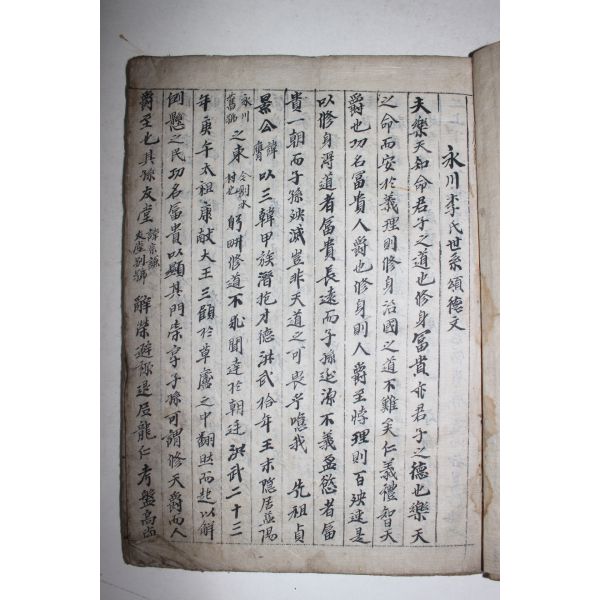 永川李氏世系頌德文
夫樂天知命君子之道也修身富貴亦君子之德也樂天
之命而安於義理則修身治國之道不難矣仁義禮智天
爵也功名富貴人爵也修身則人爵至悖理則百殃逆是
以修身得道者富貴長遠而子孫延源不義盈慾者富
貴一朝而子孫殃滅豈非天道之可畏乎噫我 先祖貞
景公諱膺以三韓甲族潛抱才德洪武拾年王末隱居益陽
永川舊號之東令則水村也躬畊修道不飛聞達於朝廷洪武二十三
年庚午太祖康獻大王三顧於草廬之中翻然而起以解
倒懸之民功名富貴以顯其門榮享子孫可謂修天爵而人
爵至也其孫友堂諱宗謙友堂別號解榮避祿退居龍仁考盤高尚